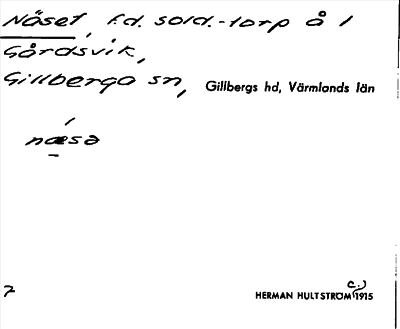 Näset, f.d. sold.-torp å 1
Gårdsvik,
Gillberga sn, Gillbergs hd, Värmlands län
næsə
7
HERMAN HULTSTRÖM c.) 1915